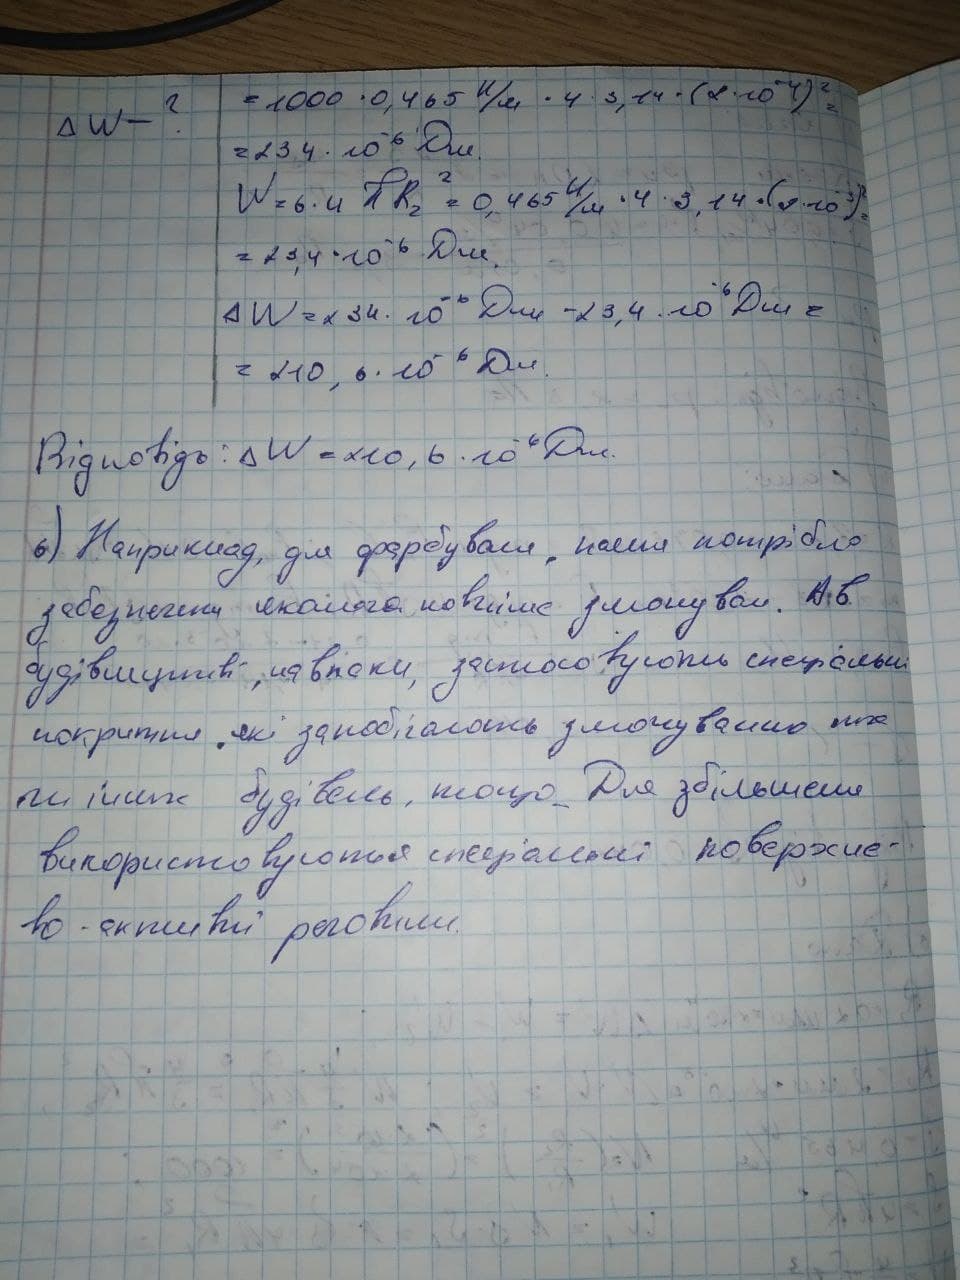 ΔW — ?
= 1000 · 0,465 Н/м · 4 · 3,14 · (2 · 10⁻⁴)² =
= 234 · 10⁻⁶ Дж.
W = б · 4 πR₂² = 0,465 Н/м · 4 · 3,14 · (2 · 10⁻³)² =
= 23,4 · 10⁻⁶ Дж.
ΔW = 234 · 10⁻⁶ Дж - 23,4 · 10⁻⁶ Дж =
= 210,6 · 10⁻⁶ Дж.
Відповідь: ΔW = 210,6 · 10⁻⁶ Дж.
6) Наприклад, для фарбування, нам потрібно
забезпечити якомога повніше змочуван. А в
будівництві, навпаки, застосовують спеціальні
покриття, які запобігають змочуванню
будівель, тощо. Для збільшення
використовуються спеціальні поверхне-
во-активні речовини.